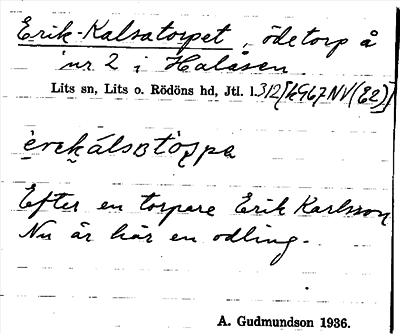 Erik-Kalsatorpet, ödetorp å
nr 2 i Halåsen.
Lits sn, Lits o. Rödöns hd, Jtl.
Efter en torpare Erik Karlsson
Nu är här en odling.
A. Gudmundson 1936.